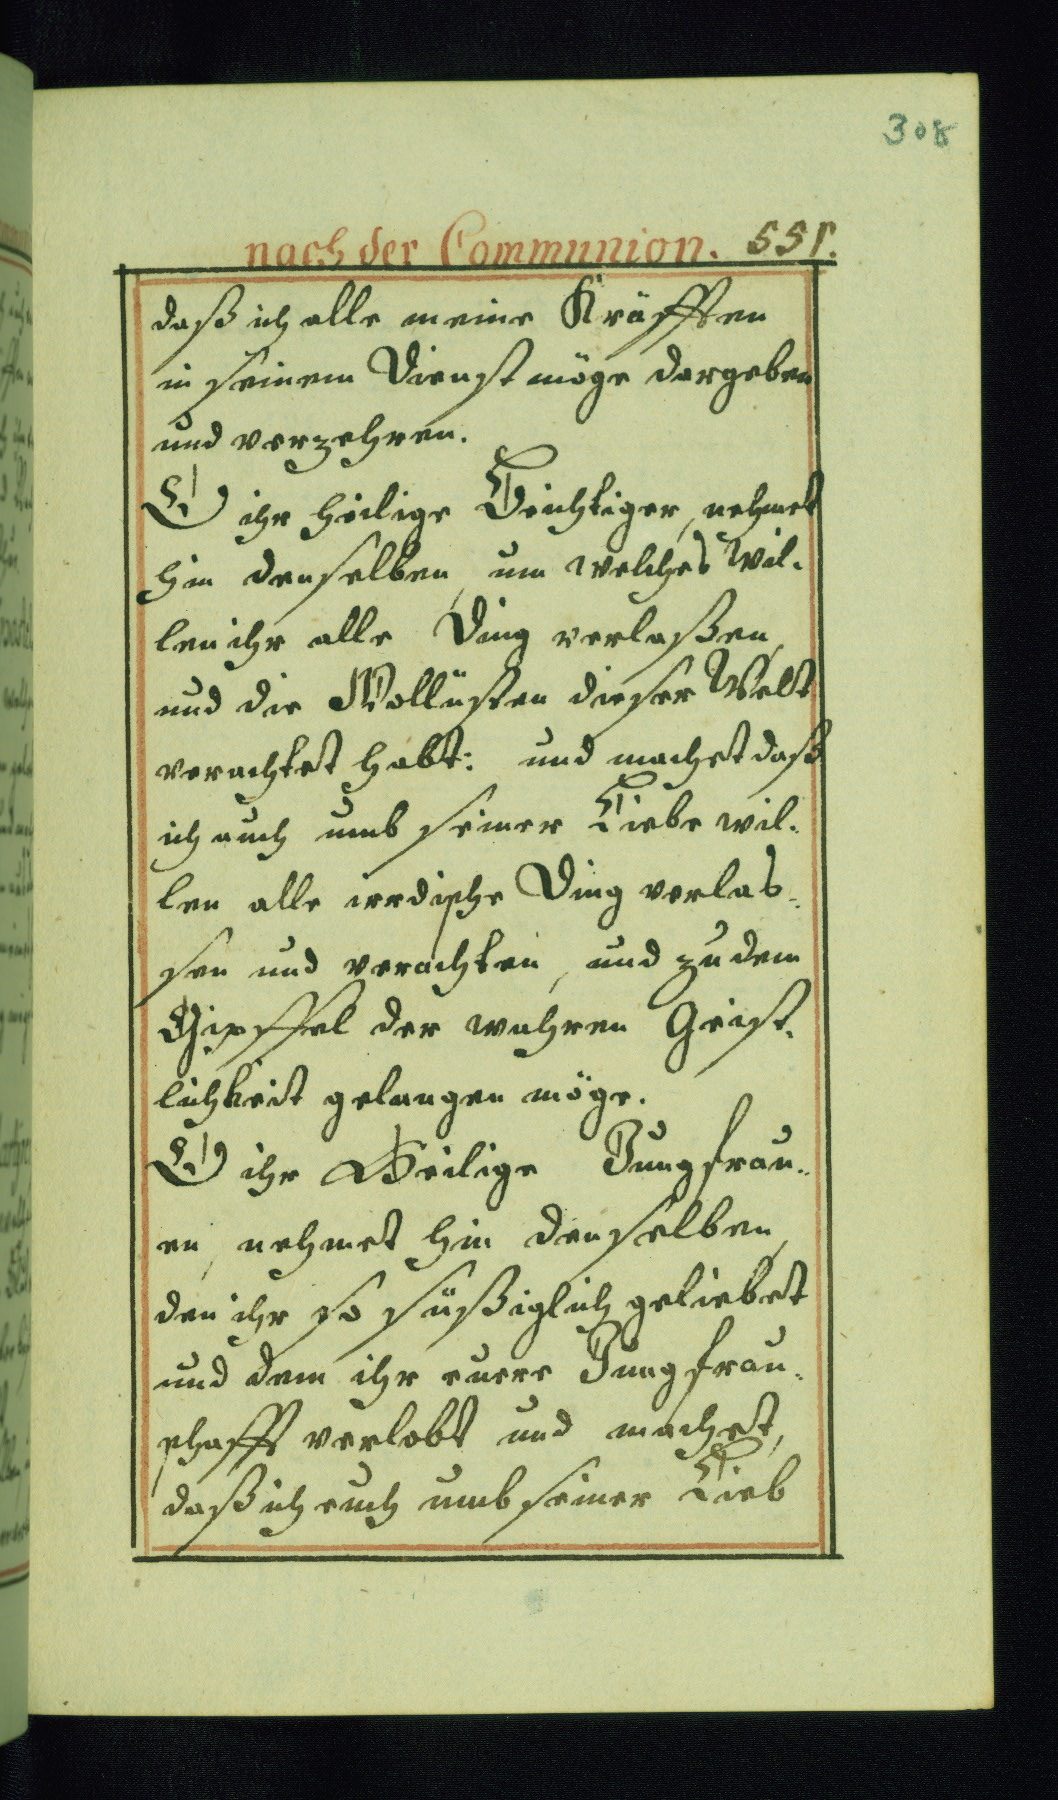 308
nach der Communion. 551.
daß ich alle meine Kräfften
in seinem Dienst möge dargeben
und verzehren.
O ihr heilige Beichtiger, nehmet
hin denselben, um welches wil-
len ihr alle Ding verlaßen,
und die Wollüsten dieser Welt
verachtet habt: und machet daß
ich auch umb seiner Liebe wil-
len alle irrdische Ding verlas-
sen und verachten, und zu dem
Gipffel der wahren Geist-
lichkeit gelangen möge.
O ihr Heilige Jungfrau-
en, nehmet hin denselben,
den ihr so süßiglich geliebet
und dem ihr euere Jungfrau-
schafft verlobt und machet,
daß ich euch umb seiner Lieb